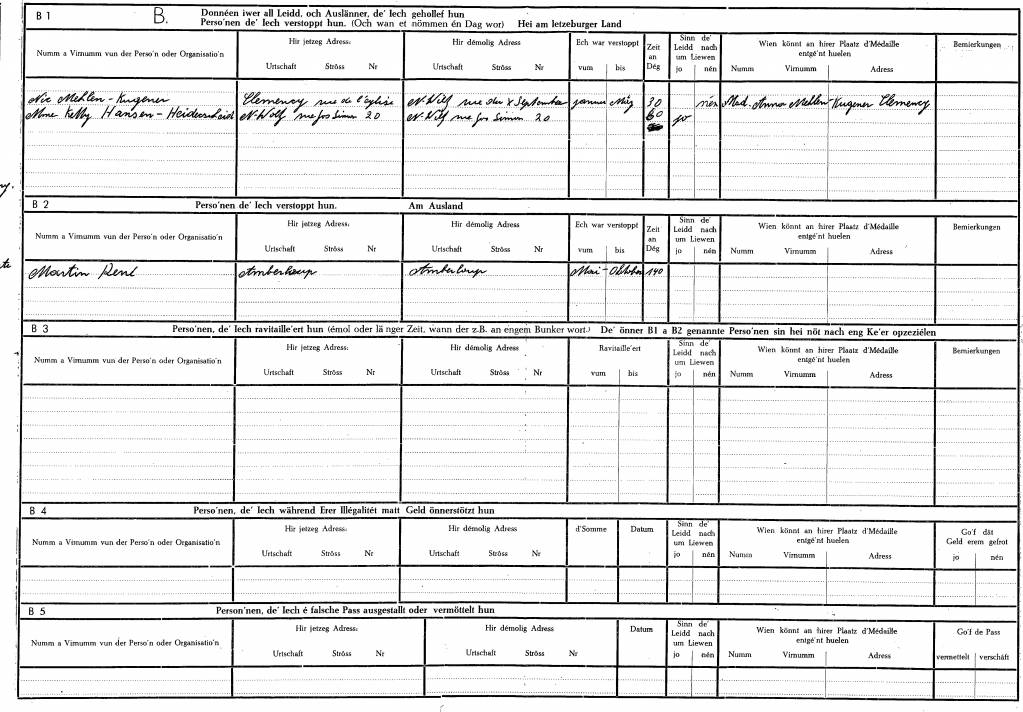 B 1 B. Donnéen iwer all Leidd, och Auslänner, de' Iech gehollef hun
Perso'nen de' Iech verstoppt hun. (Och wan et nömmen én Dag wor) Hei am letzeburger Land
Numm a Virnumm vun der Perso'n oder Organisatio'n Hir jetzeg Adress: Hir démolig Adress Ech war verstoppt Zeit an Dég Sinn de' Leidd nach um Liewen Wien könnt an hirer Plaatz d'Médaille entgé'nt huelen Bemierkungen
Urtschaft Ströss Nr Urtschaft Ströss Nr vum bis jo nén Numm Virnumm Adress
Nic Mehlen-Kugener Clemency rue de l'église rue du X Septembre janvier 30 nén Mad. Anna Mehlen-Kugener Clemency
Mme Ketty Hansen-Heiderscheid 20 20 60 jo
B 2 Perso'nen de' Iech verstoppt hun. Am Ausland
Numm a Virnumm vun der Perso'n oder Organisatio'n Hir jetzeg Adress: Hir démolig Adress Ech war verstoppt Zeit an Dég Sinn de' Leidd nach um Liewen Wien könnt an hirer Plaatz d'Médaille entgé'nt huelen Bemierkungen
Urtschaft Ströss Nr Urtschaft Ströss Nr vum bis jo nén Numm Virnumm Adress
Martin René Amberloup Amberloup Mai - Oktober 140
B 3 Perso'nen, de' Iech ravitaille'ert hun (émol oder lä nger Zeit, wann der z.B. an engem Bunker wort.) De' önner B1 a B2 genannte Perso'nen sin hei nöt nach eng Ke'er opzeziélen
Numm a Virnumm vun der Perso'n oder Organisatio'n Hir jetzeg Adress: Hir démolig Adress Ravitaille'ert Sinn de' Leidd nach um Liewen Wien könnt an hirer Plaatz d'Médaille entgé'nt huelen Bemierkungen
Urtschaft Ströss Nr Urtschaft Ströss Nr vum bis jo nén Numm Virnumm Adress
B 4 Perso'nen, de' Iech während Erer Illégalitét matt Geld önnerstötzt hun
Numm a Virnumm vun der Perso'n oder Organisatio'n Hir jetzeg Adress: Hir démolig Adress d'Somme Datum Sinn de' Leidd nach um Liewen Wien könnt an hirer Plaatz d'Médaille entgé'nt huelen Go'f dät Geld erem gefrot
Urtschaft Ströss Nr Urtschaft Ströss Nr jo nén Numm Virnumm Adress jo nén
B 5 Person'nen, de' Iech é falsche Pass ausgestallt oder vermöttelt hun
Numm a Virnumm vun der Perso'n oder Organisatio'n Hir jetzeg Adress: Hir démolig Adress Datum Sinn de' Leidd nach um Liewen Wien könnt an hirer Plaatz d'Médaille entgé'nt huelen Go'f de Pass
Urtschaft Ströss Nr Urtschaft Ströss Nr jo nén Numm Virnumm Adress vermettelt verschäft